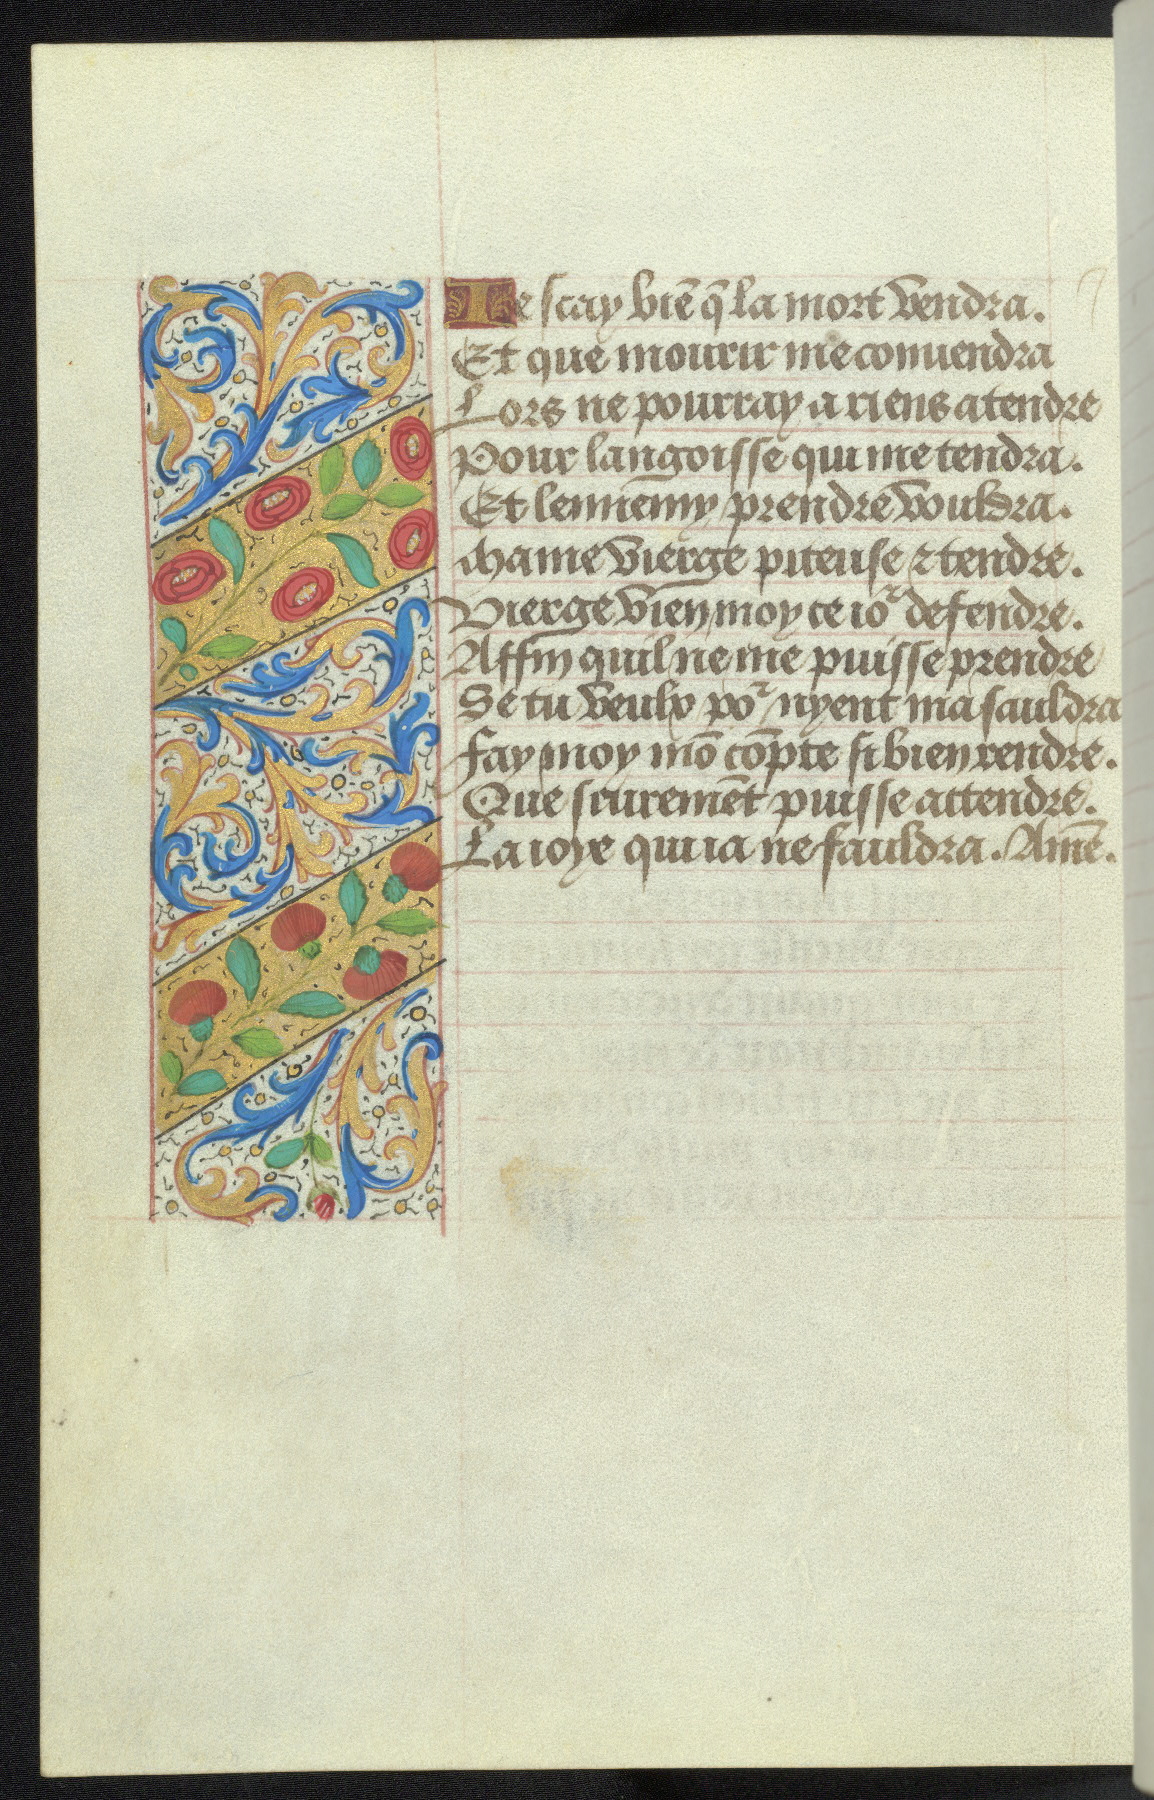 Ie scay biē q̄ la mort vendra.
Et que mourir me conuendra
Lors ne pourray a riens atendre
Pour langoisse qui me tendra.
Et lennemy prendre vouldra.
Hame vierge piteuse ⁊ tendre.
Vierge vien moy ce ioʳ defendre.
Affin quil ne me puisse prendre
Se tu veulx poʳ nyent ma sauldra
Fay moy mō cōpte si bien rendre.
Que seuremēt puisse attendre.
La ioye qui ia ne fauldra. Amē.